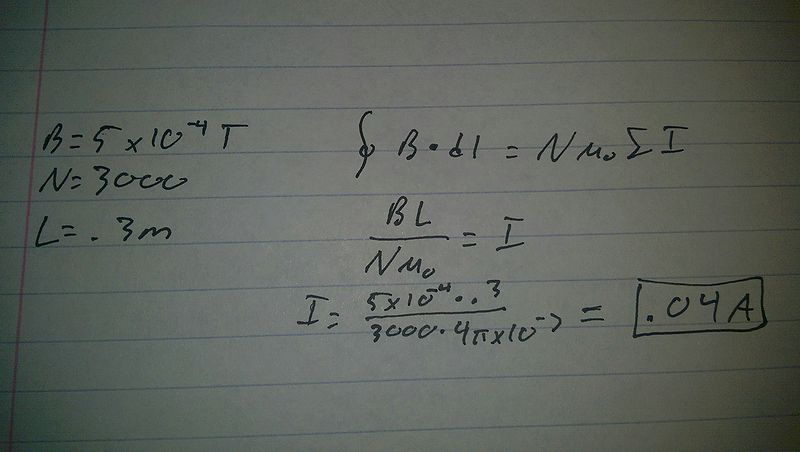 B = 5 x 10⁻⁴ T
N = 3000
L = .3m
∮ B · dl = N μ₀ Σ I
BL / Nμ₀ = I
I = 5x10⁻⁴ · .3 / 3000 · 4π x 10⁻⁷ = .04A